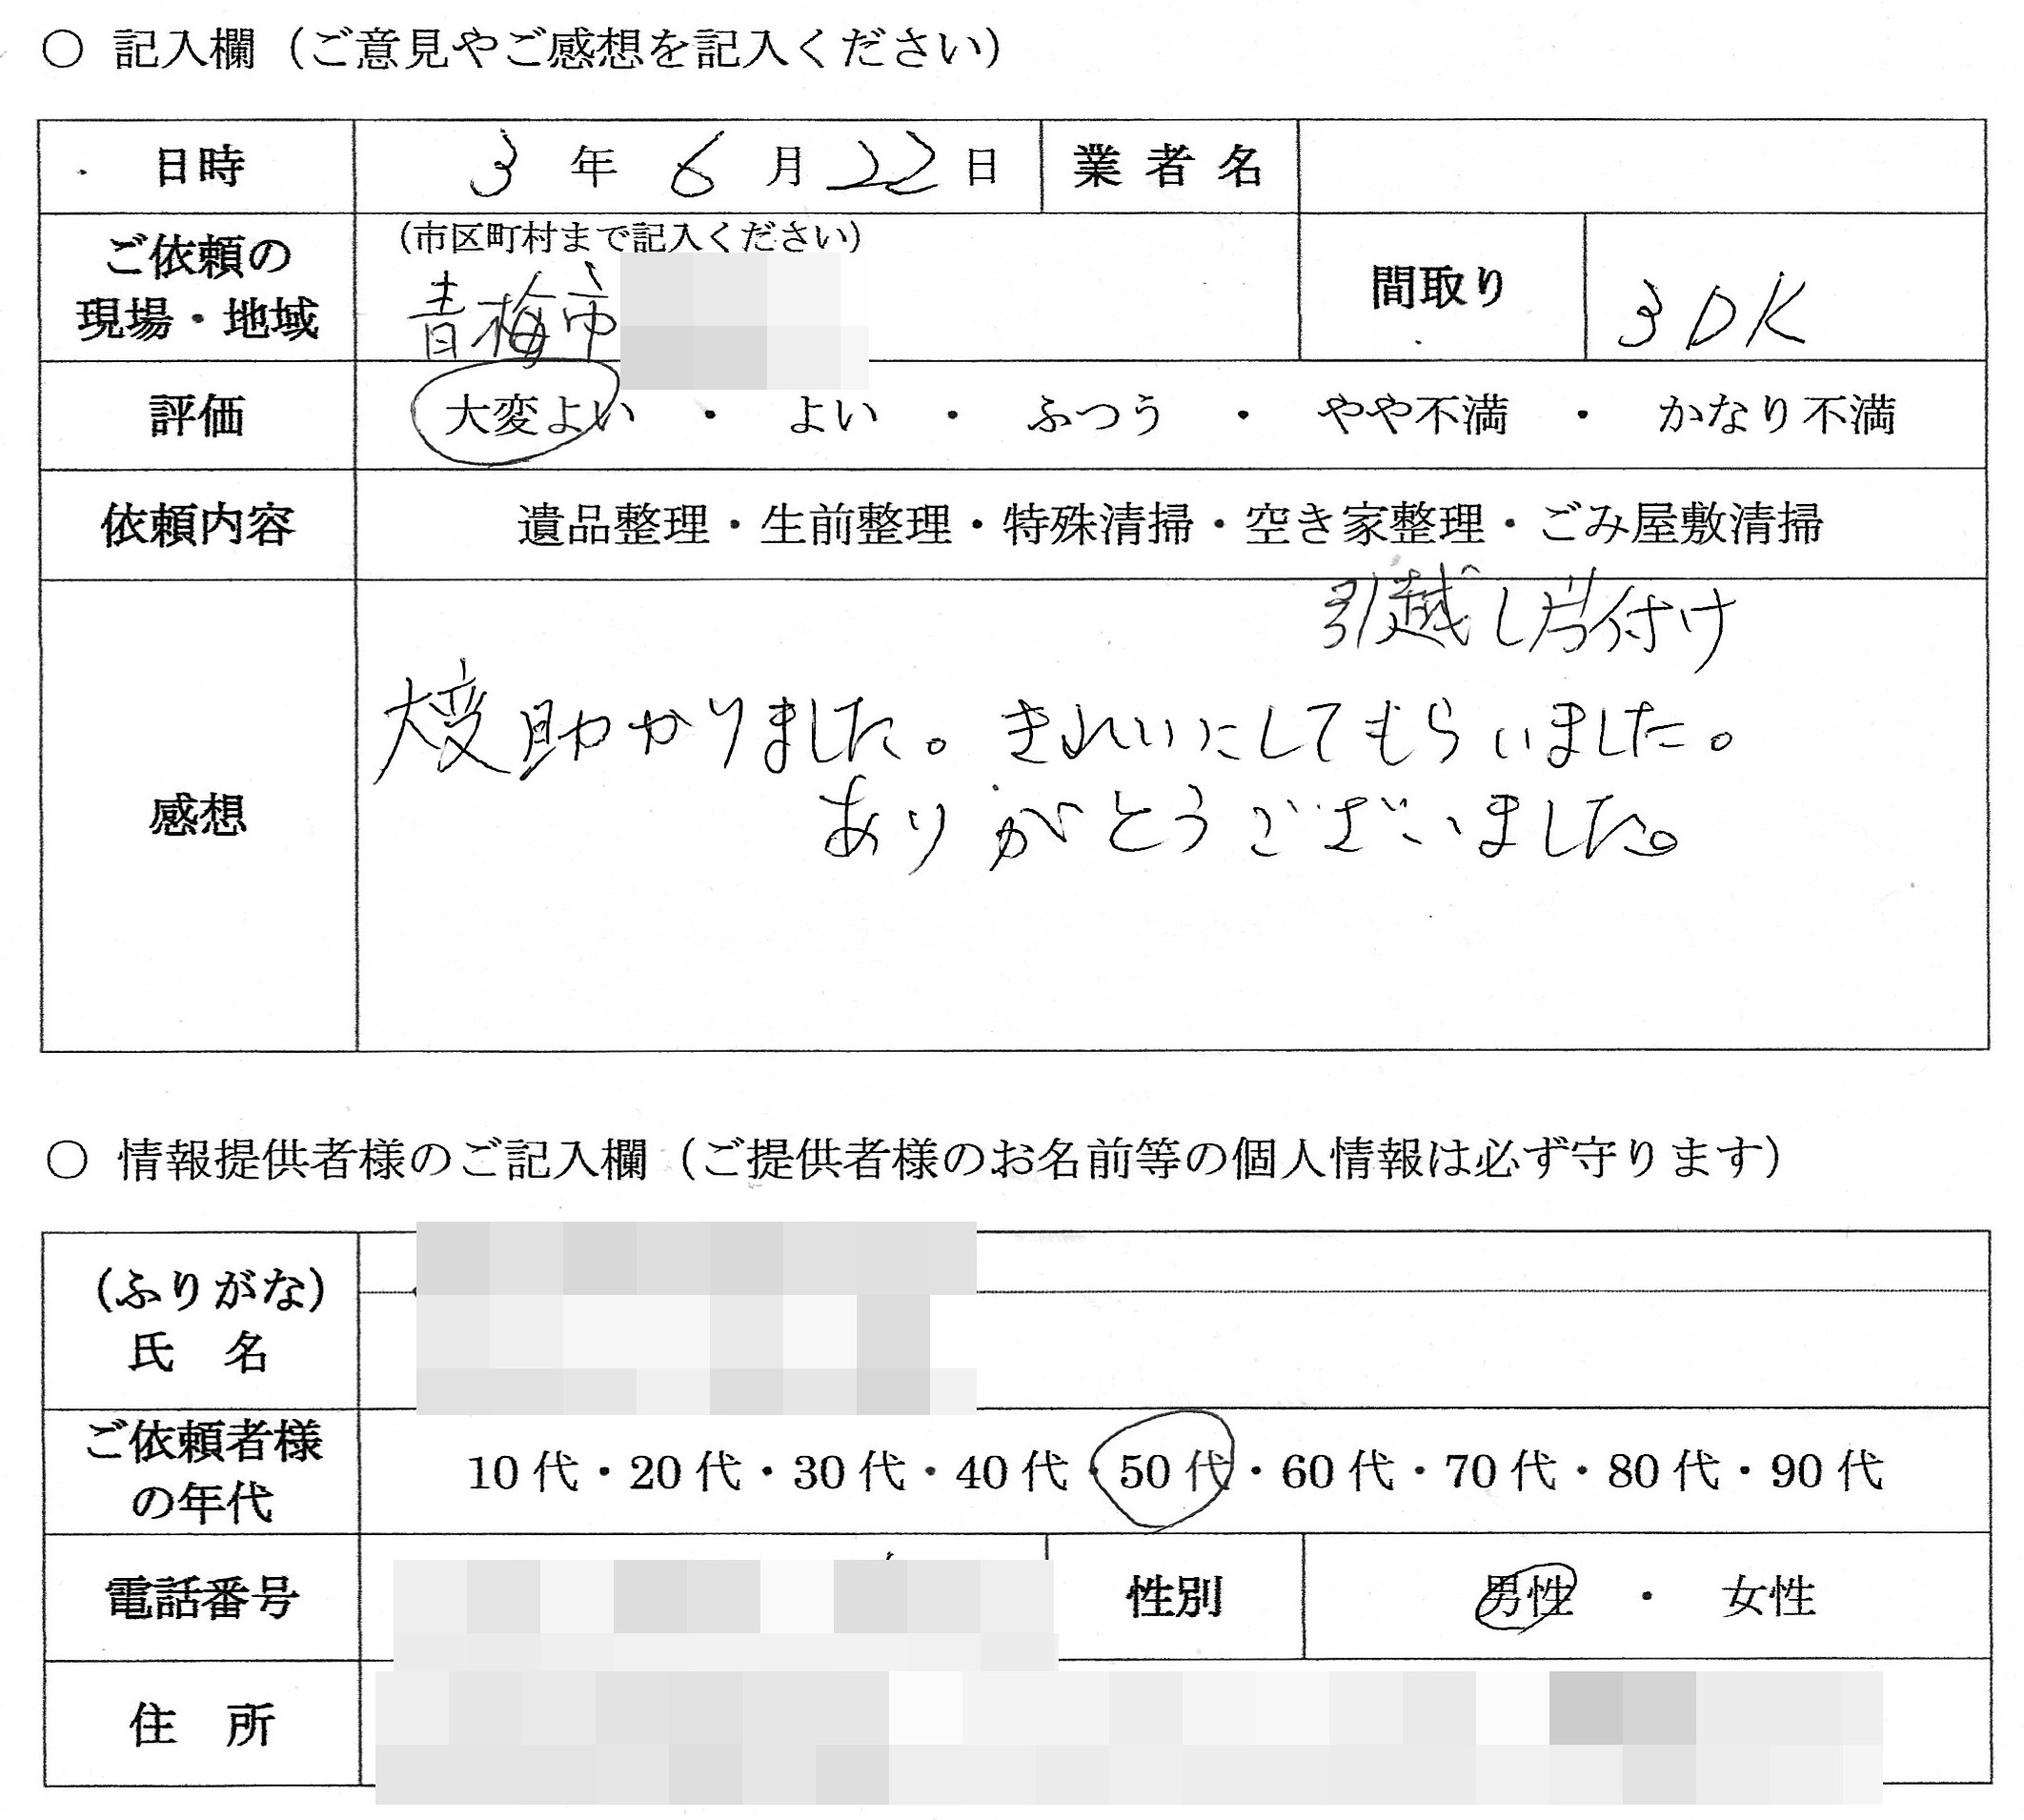 ○ 記入欄（ご意見やご感想を記入ください）
日時 3 年 6 月 22 日 業者名
ご依頼の現場・地域 （市区町村まで記入ください） 間取り 3DK
青梅市
評価 大変よい ・ よい ・ ふつう ・ やや不満 ・ かなり不満
依頼内容 遺品整理・生前整理・特殊清掃・空き家整理・ごみ屋敷清掃
引越し片付け
感想 大変助かりました。きれいにしてもらいました。
ありがとうございました。
○ 情報提供者様のご記入欄（ご提供者様のお名前等の個人情報は必ず守ります）
（ふりがな）
氏 名
ご依頼者様の年代 10代・20代・30代・40代・50代・60代・70代・80代・90代
電話番号 性別 男性 ・ 女性
住 所